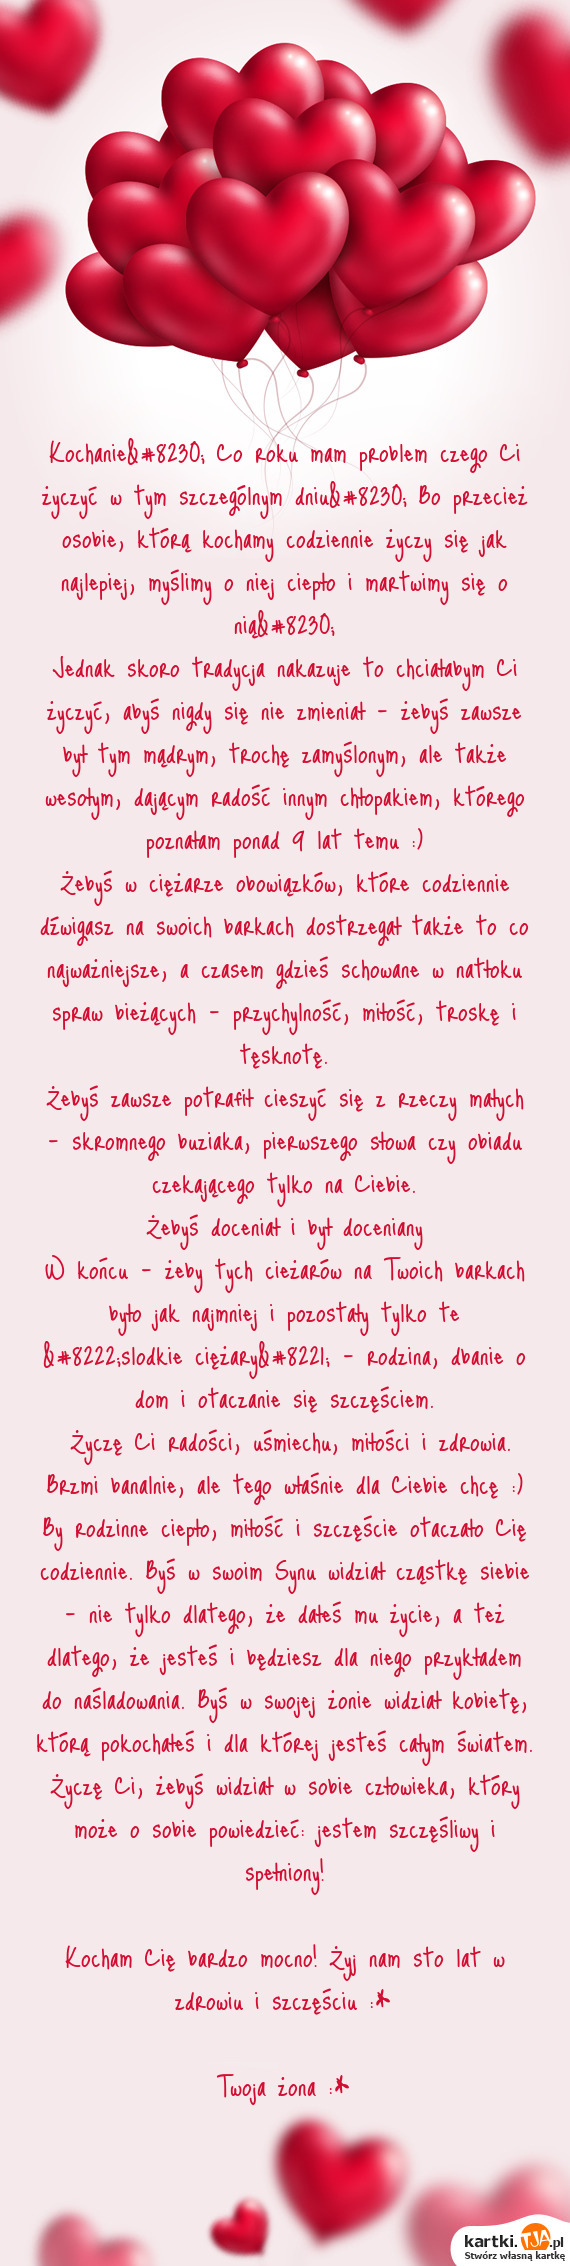 Kochanie&#8230; Co roku mam problem czego Ci
życzyć w tym szczególnym dniu&#8230; Bo przecież
osobie, którą kochamy codziennie życzy się jak
najlepiej, myślimy o niej ciepło i martwimy się o
nią&#8230;
Jednak skoro tradycja nakazuje to chciałabym Ci
życzyć, abyś nigdy się nie zmieniał - żebyś zawsze
był tym mądrym, trochę zamyślonym, ale także
wesołym, dającym radość innym chłopakiem, którego
poznałam ponad 9 lat temu :)
Żebyś w ciężarze obowiązków, które codziennie
dźwigasz na swoich barkach dostrzegał także to co
najważniejsze, a czasem gdzieś schowane w natłoku
spraw bieżących - przychylność, miłość, troskę i
tęsknotę.
Żebyś zawsze potrafił cieszyć się z rzeczy małych
- skromnego buziaka, pierwszego słowa czy obiadu
czekającego tylko na Ciebie.
Żebyś doceniał i był doceniany
W końcu - żeby tych cieżarów na Twoich barkach
było jak najmniej i pozostały tylko te
&#8222;slodkie ciężary&#8221; - rodzina, dbanie o
dom i otaczanie się szczęściem.
Życzę Ci radości, uśmiechu, miłości i zdrowia.
Brzmi banalnie, ale tego właśnie dla Ciebie chcę :)
By rodzinne ciepło, miłość i szczęście otaczało Cię
codziennie. Byś w swoim Synu widział cząstkę siebie
- nie tylko dlatego, że dałeś mu życie, a też
dlatego, że jesteś i będziesz dla niego przykładem
do naśladowania. Byś w swojej żonie widział kobietę,
którą pokochałeś i dla której jesteś całym światem.
Życzę Ci, żebyś widział w sobie człowieka, który
może o sobie powiedzieć: jestem szczęśliwy i
spełniony!
Kocham Cię bardzo mocno! Żyj nam sto lat w
zdrowiu i szczęściu :*
Twoja żona :*
kartki.TJA.pl
Stwórz własną kartkę